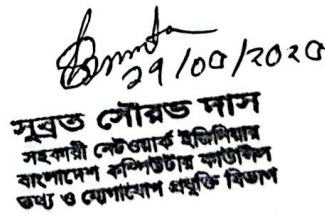 29/00/2020
সুব্রত সৌরভ দাস
সহকারী নেটওয়ার্ক ইঞ্জিনিয়ার
বাংলাদেশ কম্পিউটার কাউন্সিল
তথ্য ও যোগাযোগ প্রযুক্তি বিভাগ